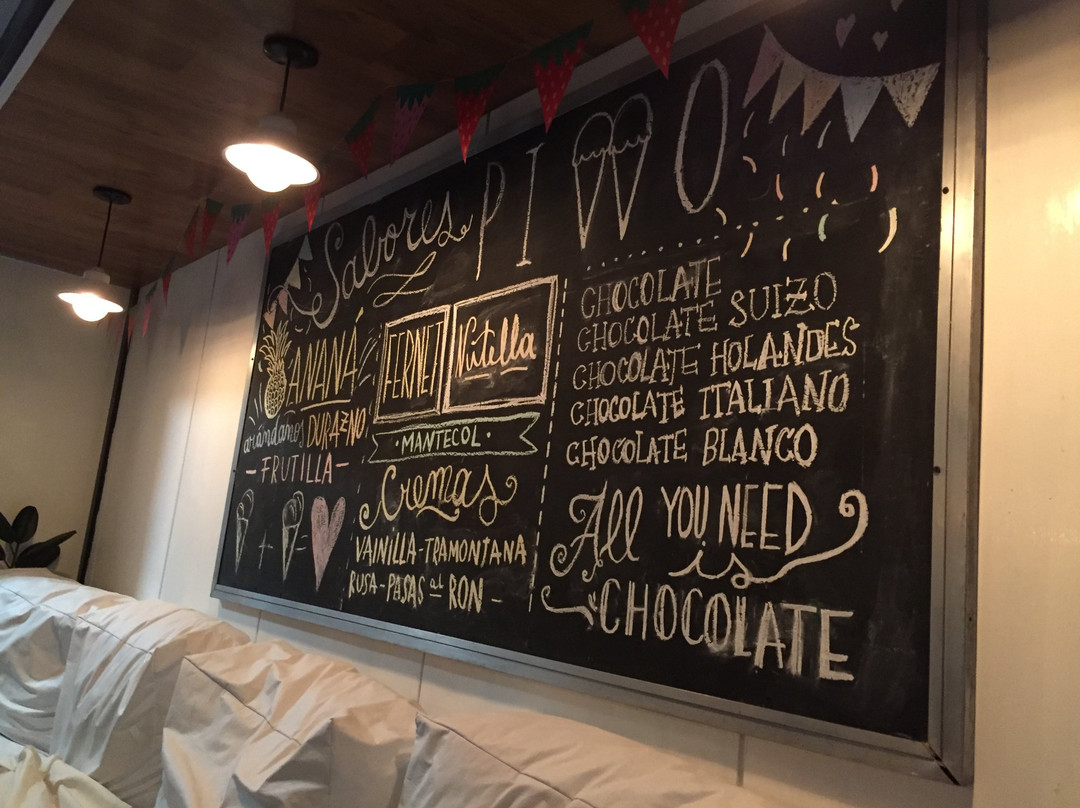 Sabores PIWO
ANANÁ
arándanos DURAZNO
-FRUTILLA-
FERNET
Nutella
·MANTECOL·
Cremas
VAINILLA-TRAMONTANA
RUSA-PASAS al RON-
CHOCOLATE
CHOCOLATE SUIZO
CHOCOLATE HOLANDES
CHOCOLATE ITALIANO
CHOCOLATE BLANCO
All YOU NEED
is
CHOCOLATE